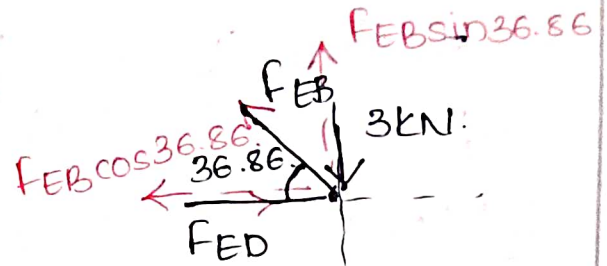 FEBsin36.86
FEB
3KN.
FEBcos36.86
36.86
FED